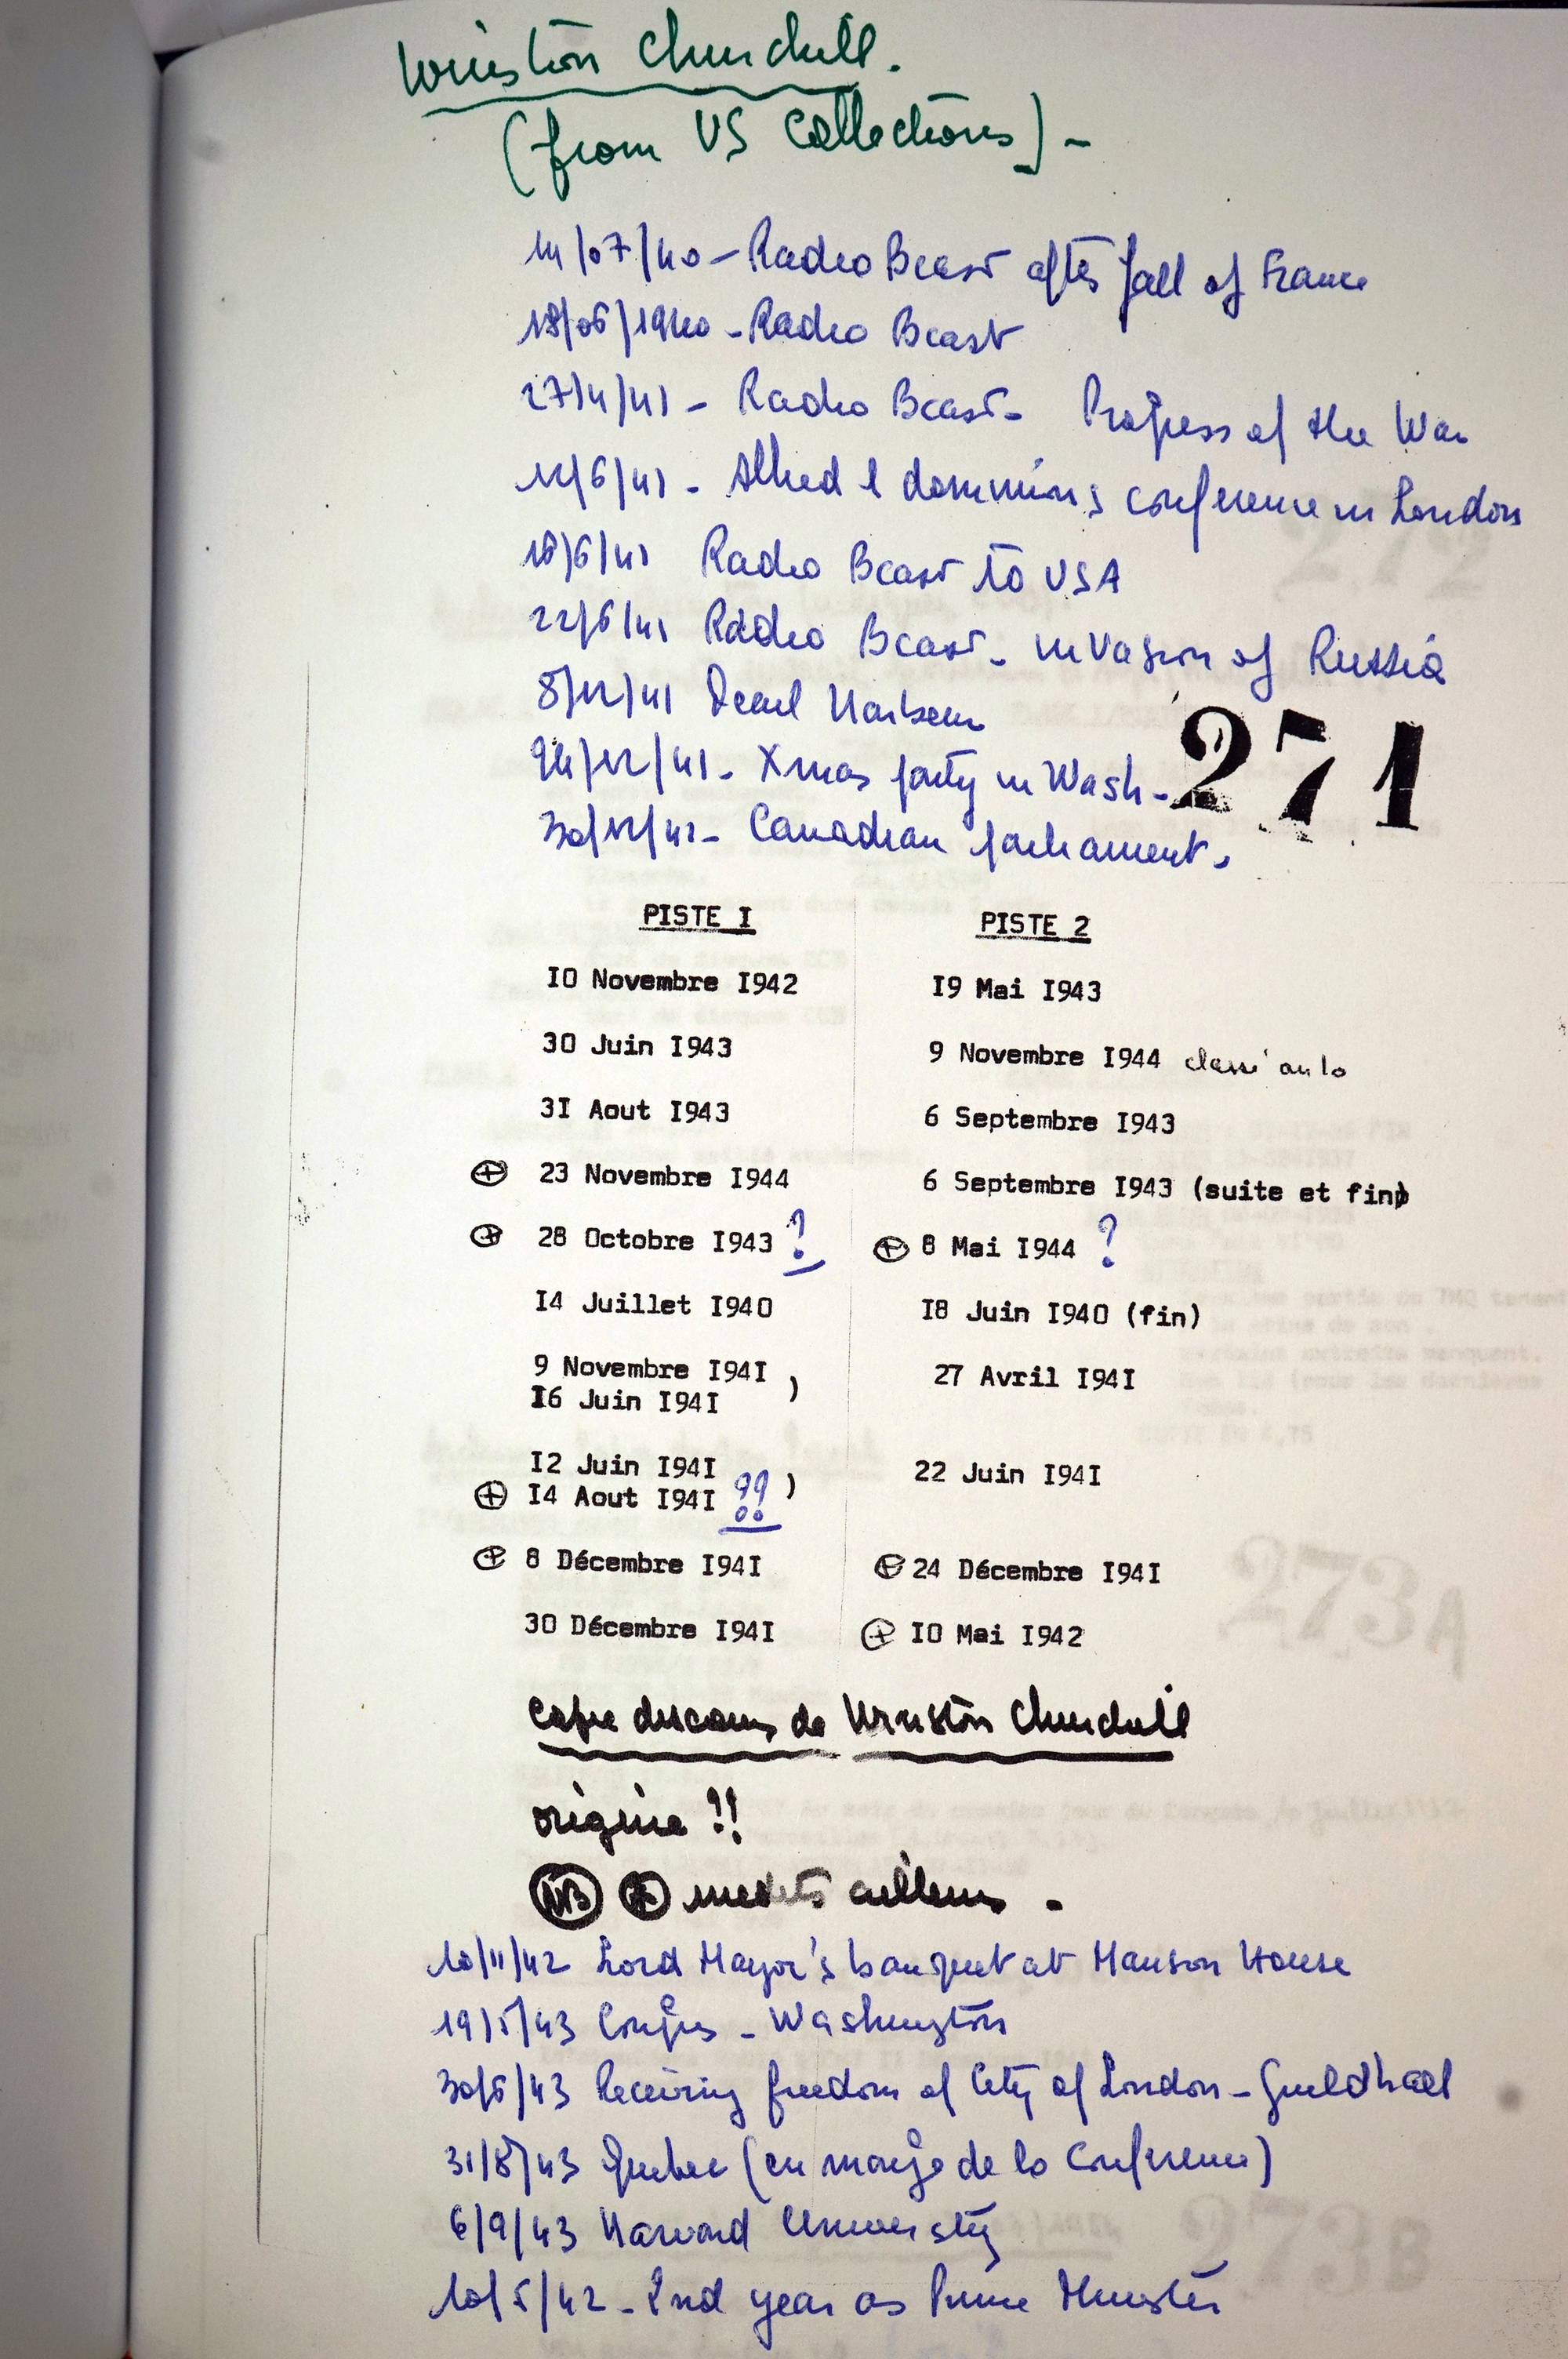 Winston Churchill.
(from US Collections) -
14/07/40 - Radio Bcast after fall of France
18/06/1940 - Radio Bcast
27/4/41 - Radio Bcast - Progress of the War
12/6/41 - Allied & dominions conference in London
16/6/41 Radio Bcast to USA
22/6/41 Radio Bcast - invasion of Russia
8/12/41 Pearl Harbour
24/12/41 - Xmas party in Wash -
271
30/12/41 - Canadian parliament.
PISTE I PISTE 2
I0 Novembre I942 I9 Mai I943
30 Juin I943 9 Novembre I944 classé au lo
3I Aout I943 6 Septembre I943
⊕ 23 Novembre I944 6 Septembre I943 (suite et fin)
⊕ 28 Octobre I943 ? ⊕ 8 Mai I944 ?
I4 Juillet I940 I8 Juin I940 (fin)
9 Novembre I94I )
27 Avril I94I
I6 Juin I94I
I2 Juin I94I )
22 Juin I94I
⊕ I4 Aout I94I ??
⊕ 8 Décembre I94I ⊕ 24 Décembre I94I
30 Décembre I94I ⊕ I0 Mai I942
Copie discours de Winston Churchill
origine !!
NB ⊕ inedits ailleurs .
10/11/42 Lord Mayor's banquet at Mansion House
19/5/43 Congres - Washington
30/6/43 Receiving freedom of City of London - Guildhall
31/8/43 Quebec (en marge de la Conference)
6/9/43 Harvard University
10/5/42 - 2nd year as Prime Minister